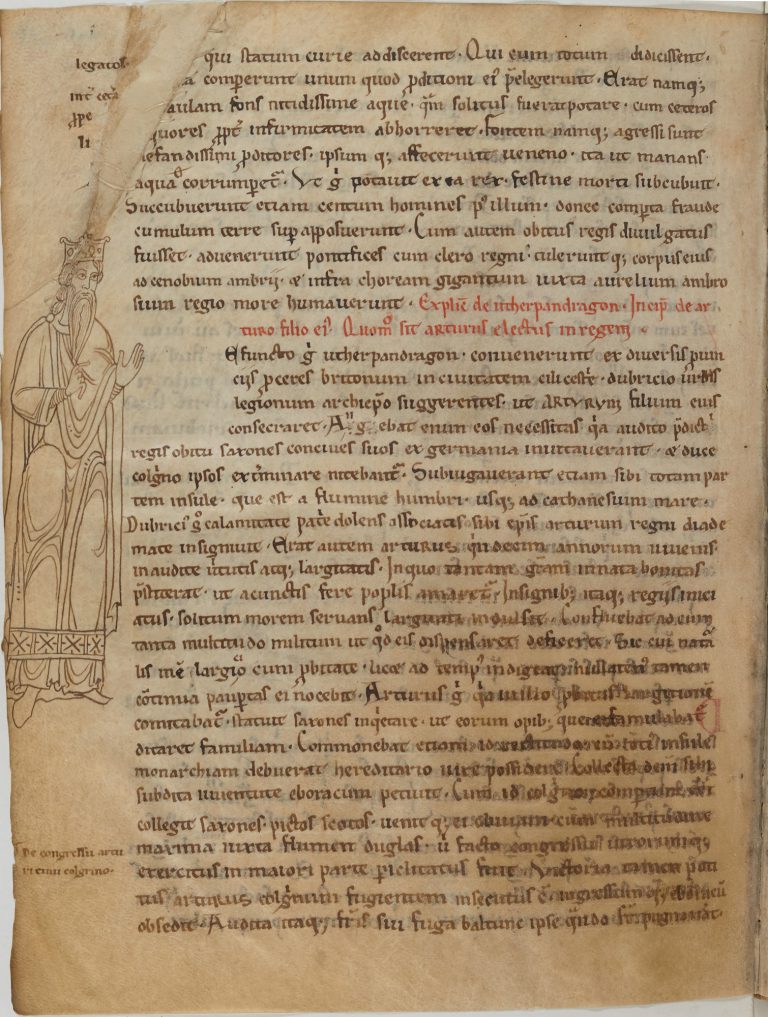 legatos
qui statum curie addiscerent · Qui eum totum didicissent ·
int̄ cet̄a
a comperunt unum quod p̄ditioni ei᷒ p̄elegerunt · Erat namq;
aulam fons nitidissime aque · quā solitus fuerat potare · cum ceteros
ꝓpe
quores ꝓpt̄ infirmitatem abhorreret · fontem namq; agressi sunt
li
nefandissimi ꝓditores · ipsum q; affecerunt ueneno · ita ut manans
aqua corrumperet̄ · Vt ḡ potauit ex ea rex · festine morti subcubuit ·
Succubuerunt etiam centum homines p᷒ illum · donec comperta fraude
cumulum terre sup apposuerunt · Cum autem obitus regis diuulgatus
fuisset · aduenerunt pontifices cum clero regni · tulerunt q; corpus eius
ad cenobium ambrii · & infra choream gigantum iuxta aurelium ambro
sium regio more humauerunt · Explic̄ de utherpandragon · Incip̄ de ar
turo filio ei᷒ Quom̊ sit arturus electus in regem ·
Efuncto ḡ utherpandragon · conuenerunt ex diuersis ꝓuin
ciis ꝓceres britonum in ciuitatem cilicestr̄ · dubricio urbis
legionum archiep̄o suggerentes · ut ARTVRVM filium eius
consecraret · Augebat enim eos necessitas q̄a audito p̄dicti
regis obitu saxones conciues suos ex germania inuitauerant · & duce
colgrīo ipsos ext̄minare nitebant̄ · Subiugauerant etiam sibi totam par
tem insule · que est a flumine humbri · usq; ad cathanesium mare ·
Dubrici᷒ ḡ calamitate patr̄e dolens associatis sibi ep̄is arturum regni diade
mate insigniuit · Erat autem arturus quindecim annorum iuuenis ·
inaudite uirtutis atq; largitatis · In quo tantam gr̄am innata bonitas
p̄stiterat · ut a cunctis fere poplis amaret̄ · Insignib; itaq; regiis inici
atus · solitum morem seruans largitati indulsit · Confluebat ad eum
tanta multitudo militum ut qd̄ eis dispensaret deficeret · Sic cui nata
lis inē largiō cum ꝓbitate · licet ad temp᷒ indigeat tamen
cōtinua paupertas ei nocebit · Arturus ḡ q̄a in illo ꝓbitas largitionē
comitabat̄ · statuit saxones inq̄etare · ut eorum opib; que ei famulabat̄
ditaret familiam · Commonebat etiam id rectitudo totī insule
monarchiam debuerat hereditario iure possidere · Collecta deni sibi
subdita iuuentute eboracum petiuit · Cum id colgrīo compertum
collegit saxones · pictos scotos · uenit q; ei obuiam cum multitudine
De congressu artu
maxima iuxta flumen duglas · ū facto congressu utrorumq;
ri cum colgrino ·
exercitus in maiori parte periclitatus fuit · Victoria tamen poti
tus arturus colgrīnum fugientem insecutus ē
obsedit · Audita itaq; fr̄is sui fuga baldulfc ipse qundo